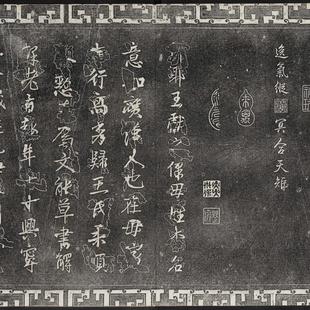 逸氣縱 冥合天矩
琅耶王獻之保母姓李名
意如廣漢人也在母家
志行高秀歸王氏柔順
恭懃善屬文能草書解
釋老旨趣年七十興寧